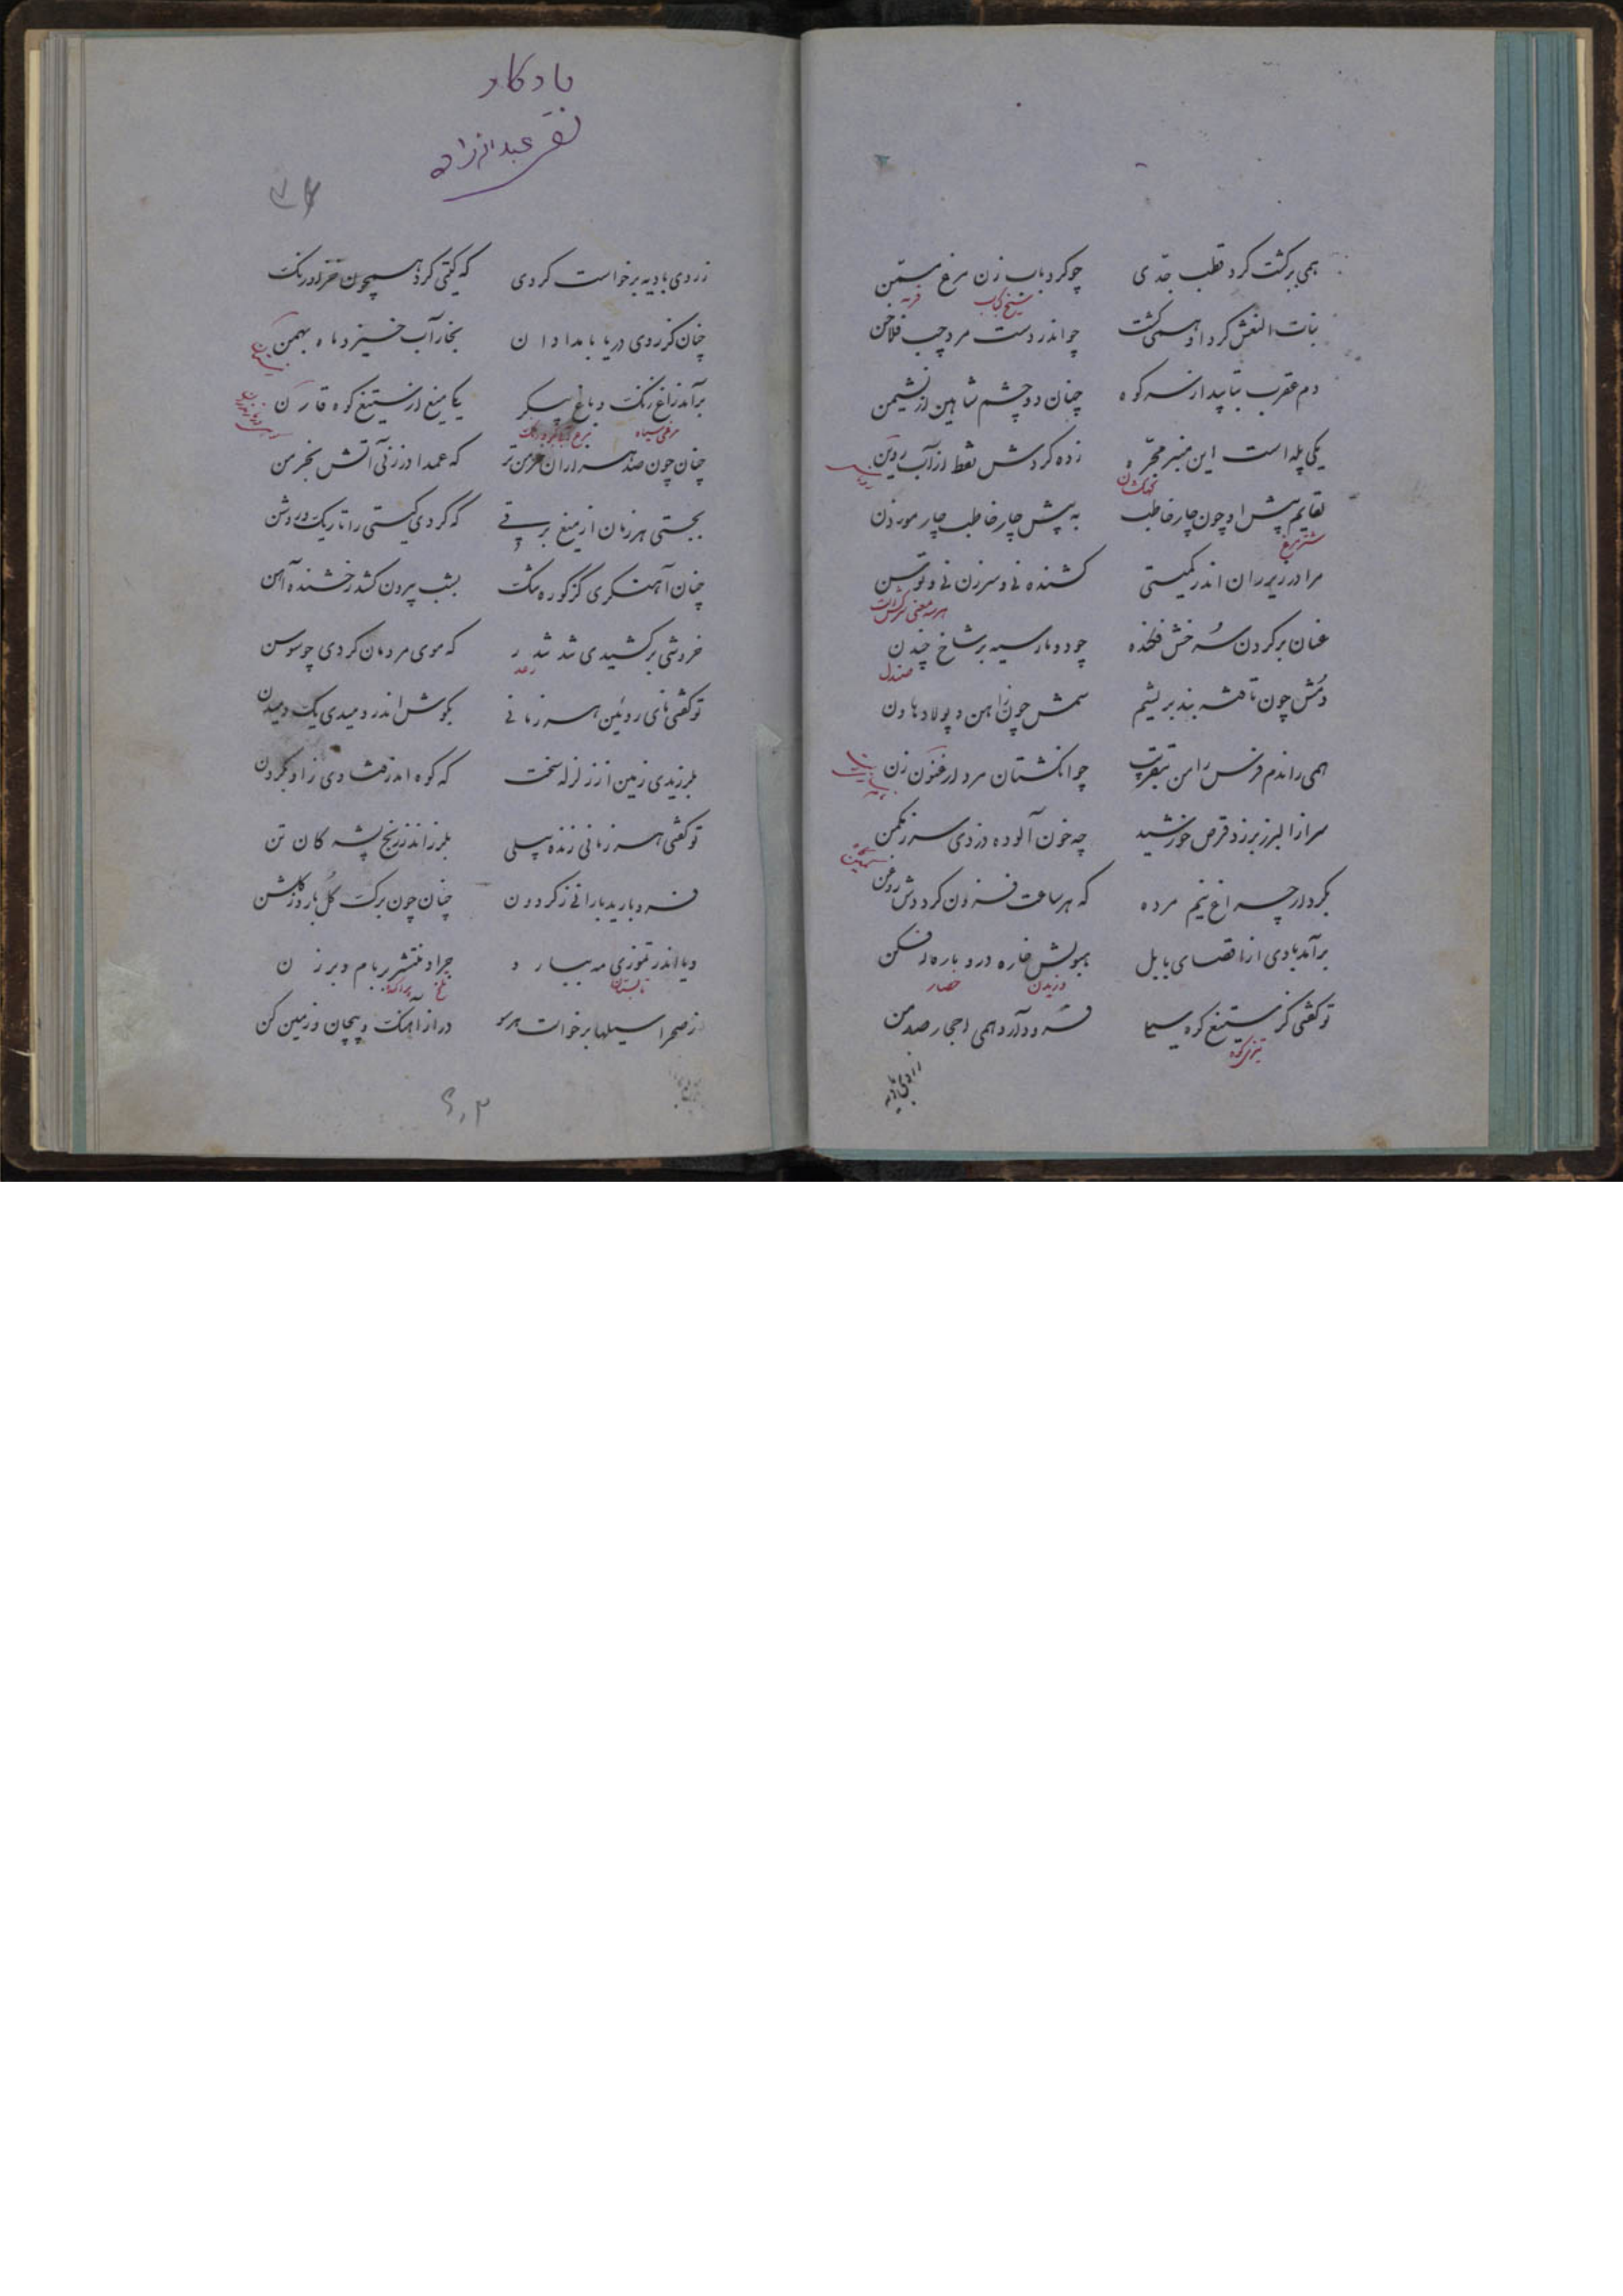 همی برگشت گرد قطب جدّی
چو گرد بابزن مرغ مسمّن
سیخ کباب
فربه
بنات النعش گرد او همیگشت
چو اندر دست مرد چپ فلاخن
دم عقرب بتابید از سر کوه
چنان دو چشم شاهین از نشیمن
یکی پله است این منبر مجرّه
زده گردش نقط از آب روین
کهکشان
نعایم پیش او چون چار خاطب
به پیش چار خاطب چار موذن
شترمرغ
مرا در زیر ران اندر کمیتی
کشنده نی و سرزن نی و توسن
هرسه معنی سرکش است
عنان بر گردن سرخش فکنده
چو دو مار سیه بر شاخ چندن
صندل
دمش چون تافته بند بریشم
سمش چون زاهن و پولاد هاون
همی راندم فرس را من بتقریب
چو انگشتان مرد ارغنون زن
سر از البرز برزد قرص خورشید
چه خون آلوده دزدی سر ز مکمن
بکردار چراغ نیم مرده
که هر ساعت فزون گرددش روغن
برآمد بادی از اقصای بابل
هبوبش خاره در و باره افکن
وزیدن
حصار
تو گفتی کز ستیغ کوه سیلی
فرود آرد همی احجار صد من
تیزی کوه
ز روی بادیه
یادگار
تقی عبدالرزاق
ز روی بادیه برخواست گردی
که گیتی کرد همچون خز ادرنگ
چنان کز روی دریا بامدادان
بخار آب خیزد ماه بهمن
برآمد زاغ رنگ و ماغ پیکر
یکی میغ از ستیغ کوه قارن
مرغی سیاه
چنان چون صد هزاران خرمن تر
که عمدا در زنی آتش بخرمن
بجستی هر زمان از میغ برقی
که کردی گیتی را تاریک و روشن
چنان آهنگری کز کوره تنگ
بشب بیرون کشد رخشنده آهن
خروشی برکشیدی تند تندر
که موی مردمان کردی چو سوسن
رعد
تو گفتی نای روئین هر زمانی
بگوش اندر دمیدی یک دمیدن
بلرزیدی زمین از زلزله سخت
که کوه اندر فتادی زو بگردن
تو گفتی هر زمانی زنده پیلی
بلرزاند ز رنج پشه کان تن
فرو بارید بارانی ز گردون
چنان چون برگ گل بارد ز گلشن
و یا اندر تموزی مه ببارد
جراد منتشر بر بام و برزن
تابستان
ملخ
پراکنده
ز صحرا سیلها برخواست هر سو
دراز آهنگ و پیچان و زمین کن